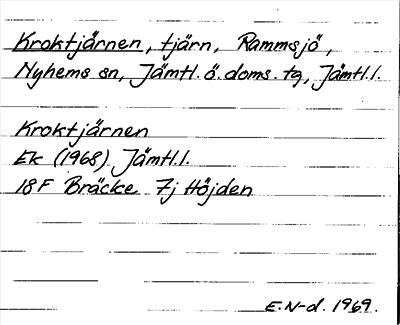 Kroktjärnen, tjärn, Rammsjö,
Nyhems sn, Jämtl. ö. doms. tg, Jämtl.l.
Kroktjärnen
Ek (1968) Jämtl.l.
18F Bräcke 7j Höjden
E.N-d. 1969.